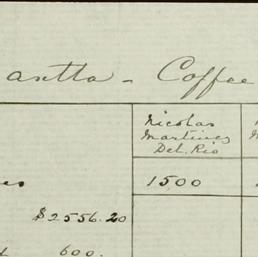 asetta - Coffee
Nicolas
Martinez
Del Rio
es
1500
$2556.20
600.